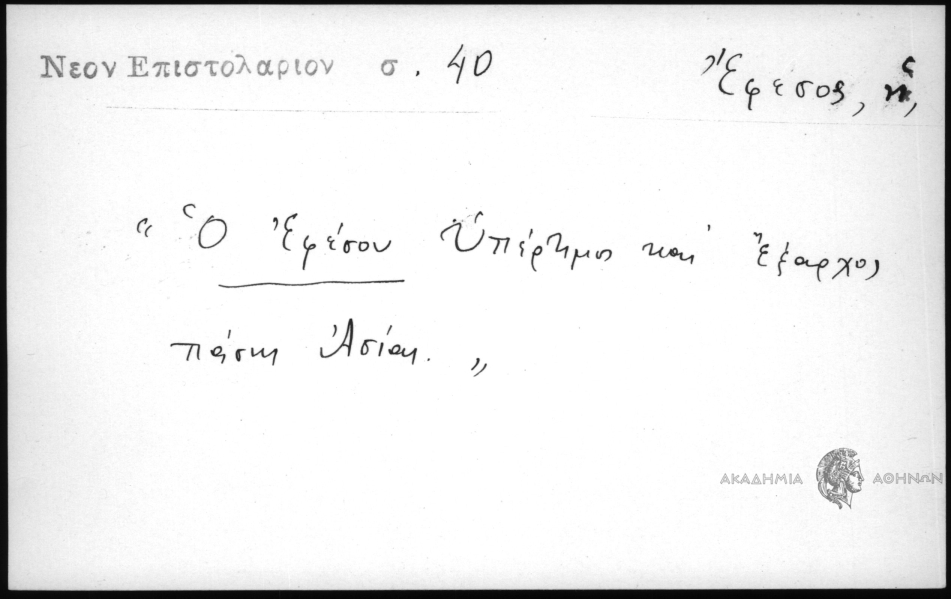 Νεον Επιστολαριον σ. 40
Ἔφεσος, ἡ,
“ Ὁ Ἐφέσου Ὑπέρτιμος καὶ Ἔξαρχος
πάσης Ἀσίας. „
ΑΚΑΔΗΜΙΑ ΑΘΗΝΩΝ